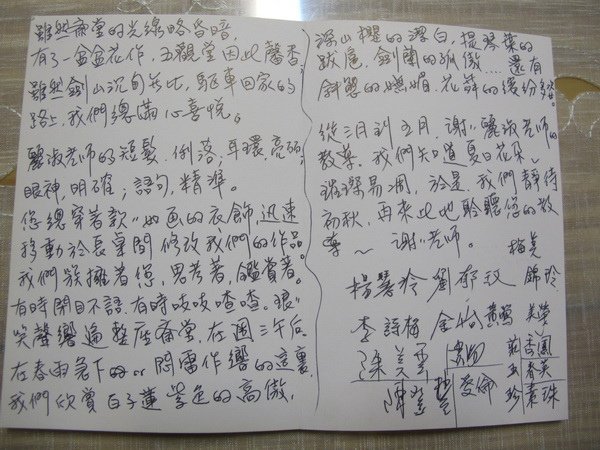 雖然齋堂的光線略昏暗,
有了一盆盆花作,五觀堂因此馨香,
雖然劍山沉甸無比,驅車回家的
路上,我們總滿心喜悅。
麗淑老師的短髮,俐落;耳環,亮碩;
眼神,明確;語句,精準。
您總穿著歡心如画的衣飾,迅速
移動於長桌間修改我們的作品。
我們簇擁著您,思考著,鑑賞著。
有時閉目不語,有時吱吱喳喳。
笑聲響遍整座齋堂,在週三午后,
在春雨急下的or悶雷作響的這裏,
我們欣賞百子蓮紫色的高傲,
深山櫻的潔白,提琴葉的
跋扈,劍蘭的孤傲……還有
斜懸的嫵媚,花藝的繽紛多姿。
從三月到五月,謝謝麗淑老師的
教導,我們知道夏日花朵~
璀璨易凋,於是,我們靜待
初秋,再來此地聆聽您的教
導~ 謝謝老師。
梅美
楊馨玲 劉 玟 錦玲
李詩梅 金 黃鶯 美榮
陳美雲 莊香圓
玉春英
陳 委倫 珍素珠